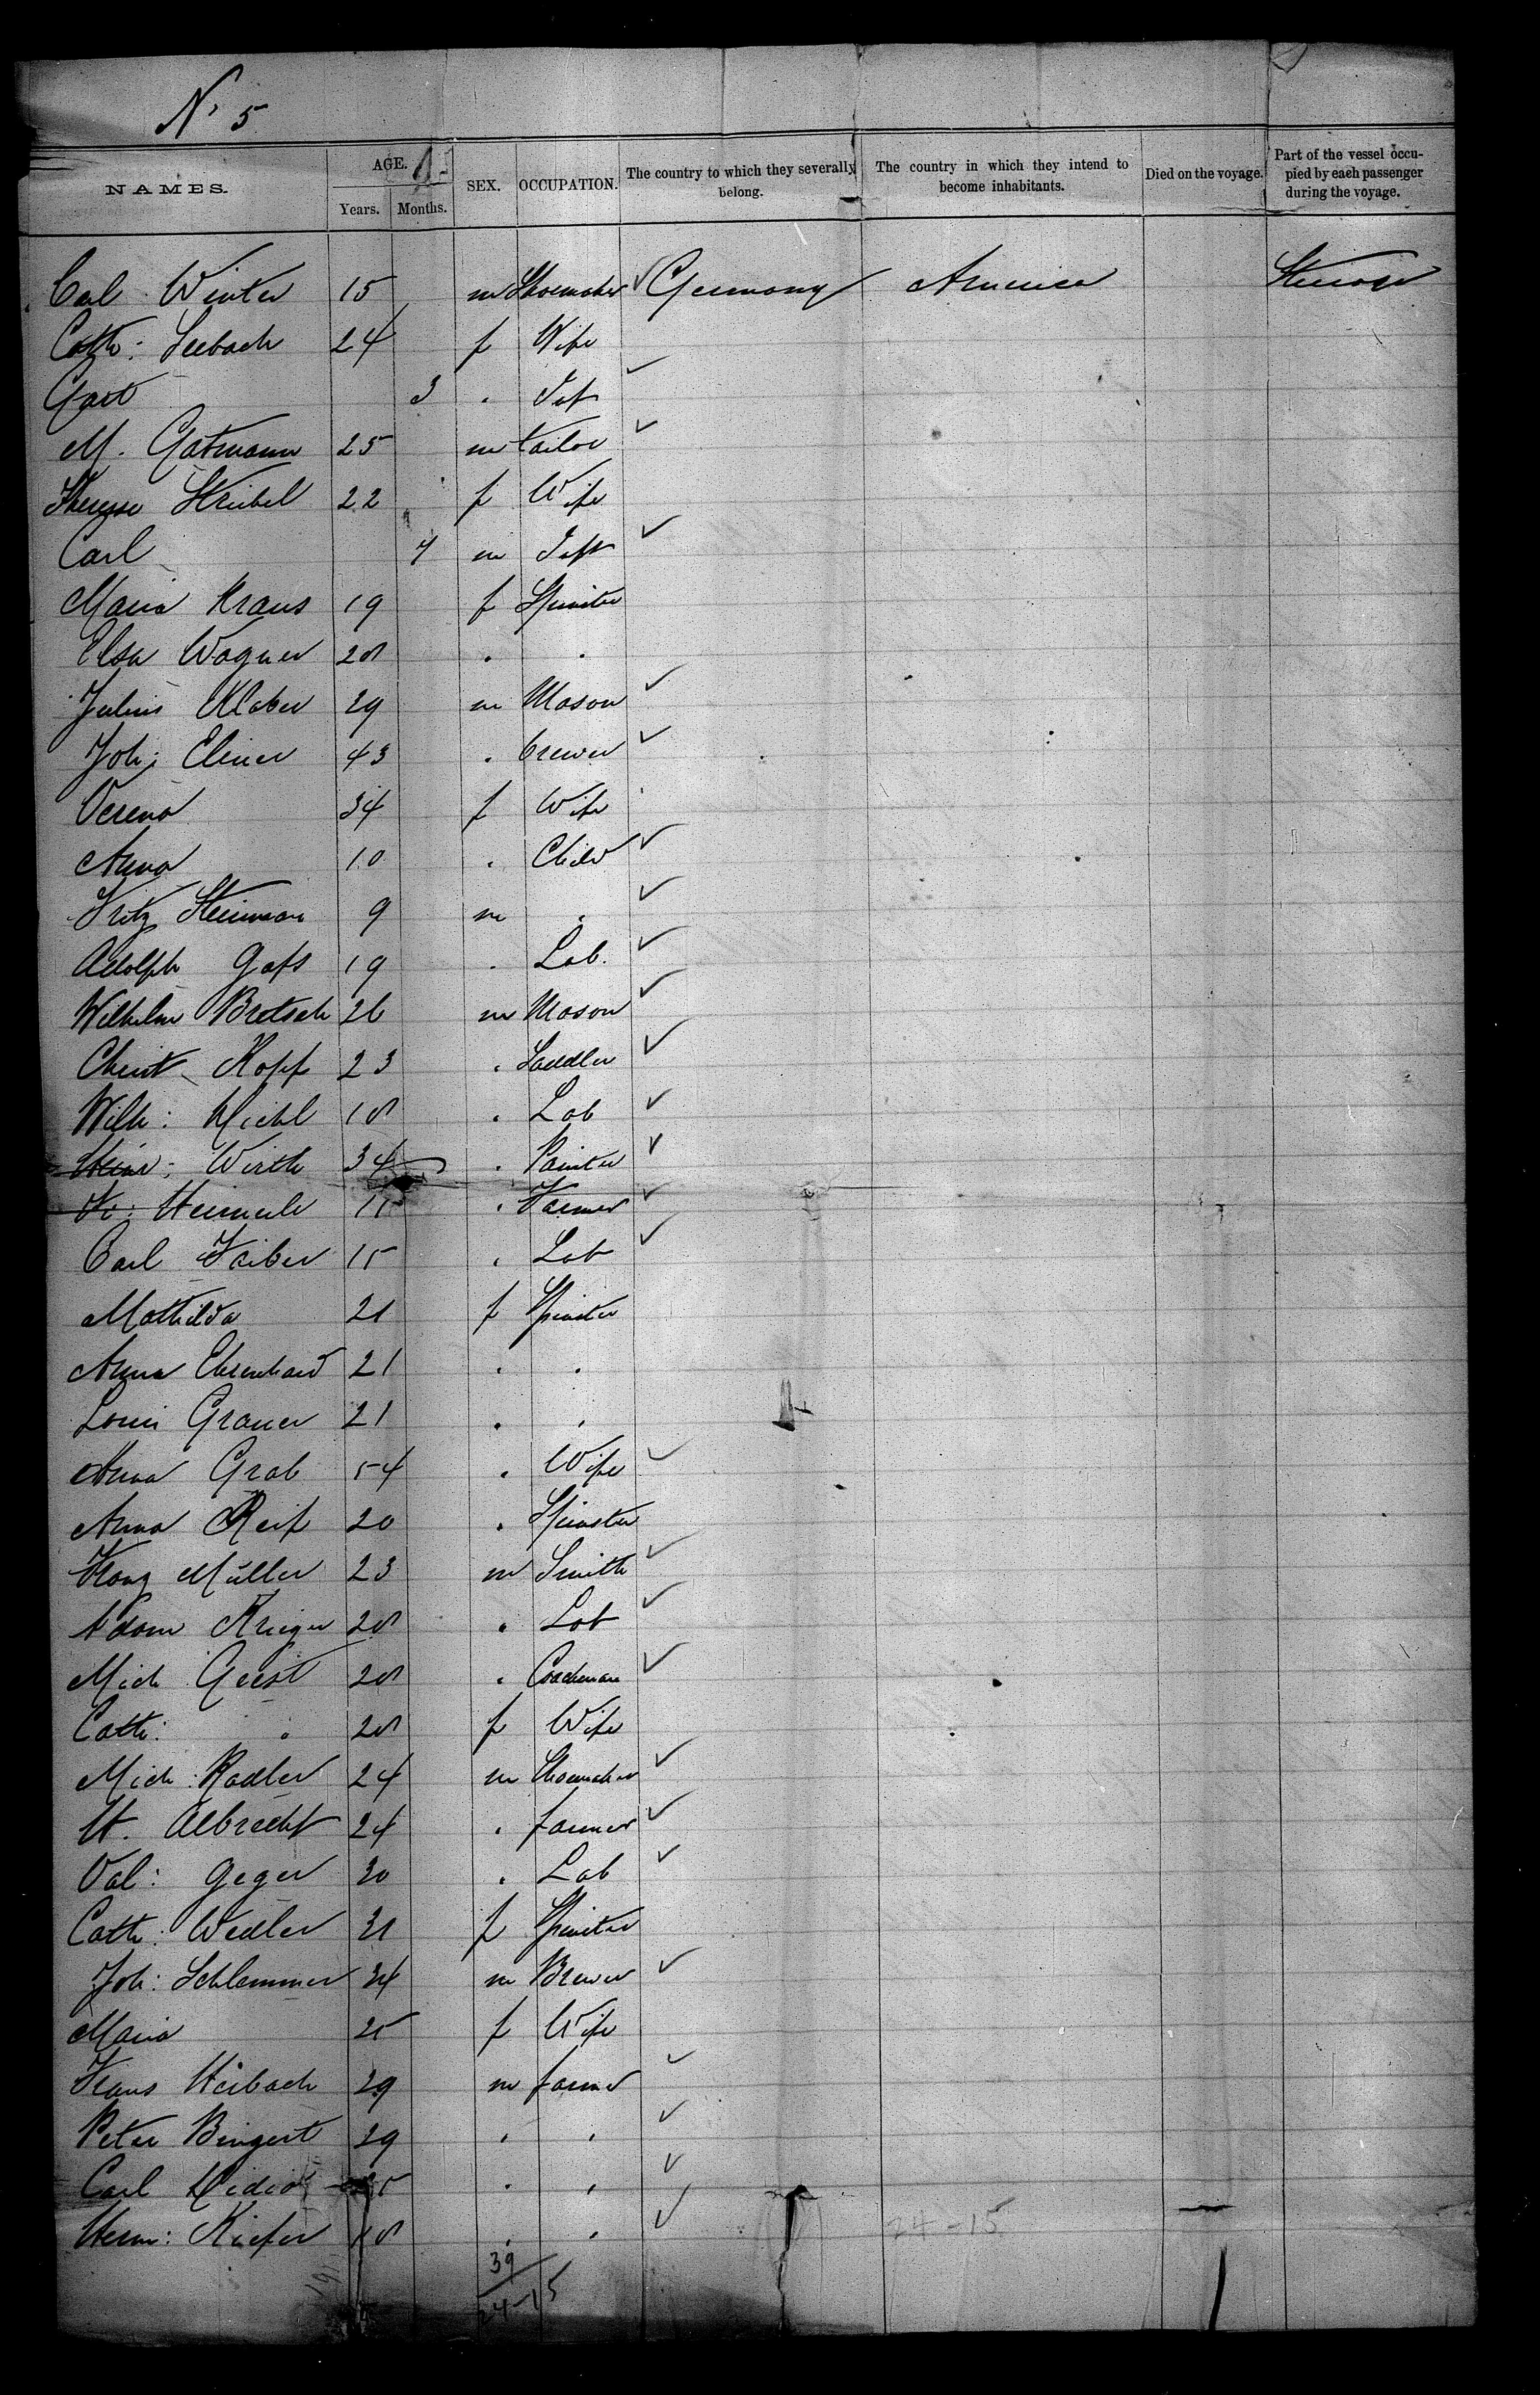 No 5
NAMES. AGE. Years. Months. SEX. OCCUPATION. The country to which they severally belong. The country in which they intend to become inhabitants. Died on the voyage. Part of the vessel occupied by each passenger during the voyage.
Carl Winter 15 m Shoemaker ✓ Germany America Steerage
Cath: Seebach 24 f Wife
3 " Inft ✓
M. Gatmann 25 m tailor ✓
Therese Striebel 22 f Wife
Carl m Inft ✓
Maria Kraus 19 f Spinster
Elsa Wagner 28 " "
Julius Klaber 29 m Mason ✓
Joh: 43 " brewer ✓
Verena 34 f Wife
Anna 10 " Child ✓
Fritz 9 m " ✓
Adolph 19 " Lab. ✓
Wilhelm Bretsch 26 m Mason ✓
Christ Kopf 23 " Saddler ✓
Wilh: 18 " Lab ✓
Wirth 34 " Painter ✓
" Farmer ✓
Carl Faiber 15 " Lab ✓
Mathilda 21 f Spinster
Anna 21 " "
Louis Grauer 21 " "
Anna Grab 54 " Wife ✓
Anna Reif 20 " Spinster
Franz Müller 23 m Smith ✓
Adam Krieger 28 " Lab ✓
Mich Geist 28 " Coachman ✓
Cath: " 28 f Wife
Mich: Radler 24 m Shoemaker ✓
H. Albrecht 24 " farmer ✓
Val: Geger 30 " Lab ✓
Cath: Wedler 31 f Spinster
Joh: Schlemmer 34 m Brewer ✓
Maria 25 f Wife
Franz Heibach 29 m farmer ✓
Peter Bingert 29 " " ✓
Carl " " ✓
Herm: Kiefer 18 " " ✓
24-15
39
24-15